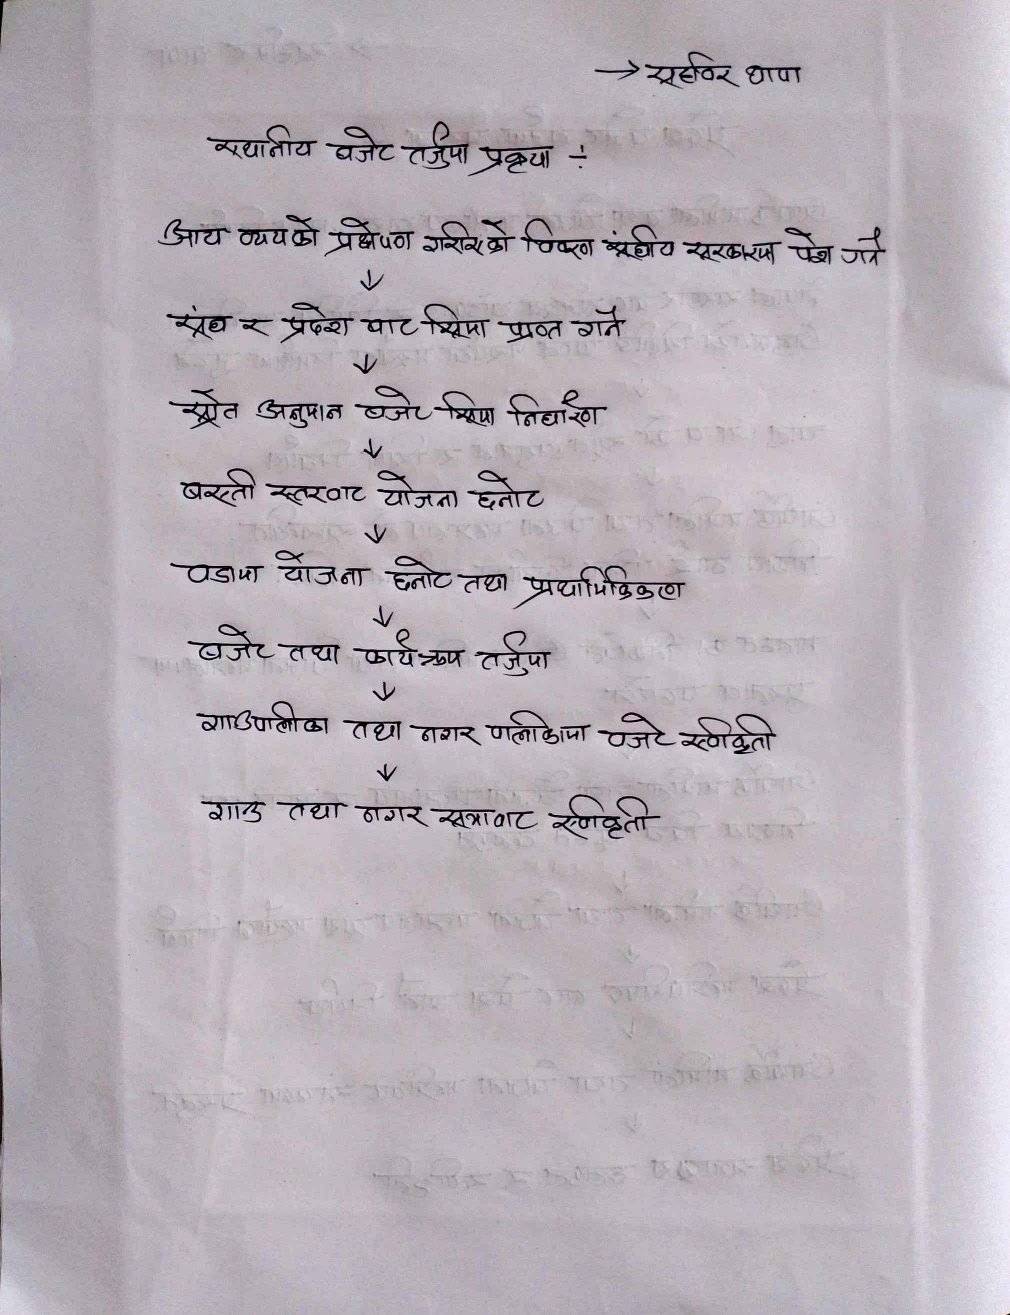 → सहविर थापा
स्थानीय बजेट तर्जुमा प्रकृया ÷
आय व्ययको प्रक्षेपण गरीसको विवरण संघीय सरकारमा पेश गर्ने
↓
संघ र प्रदेश बाट सिमा प्राप्त गर्ने
↓
स्रोत अनुमान बजेट सिमा निर्धारण
↓
बस्ती स्तरबाट योजना छनोट
↓
वडामा योजना छनोट तथा प्राथामिकिकरण
↓
बजेट तथा कार्यक्रम तर्जुमा
↓
गाउपालीका तथा नगर पालीकामा बजेट स्वीकृती
↓
गाउ तथा नगर सभाबाट स्वीकृती